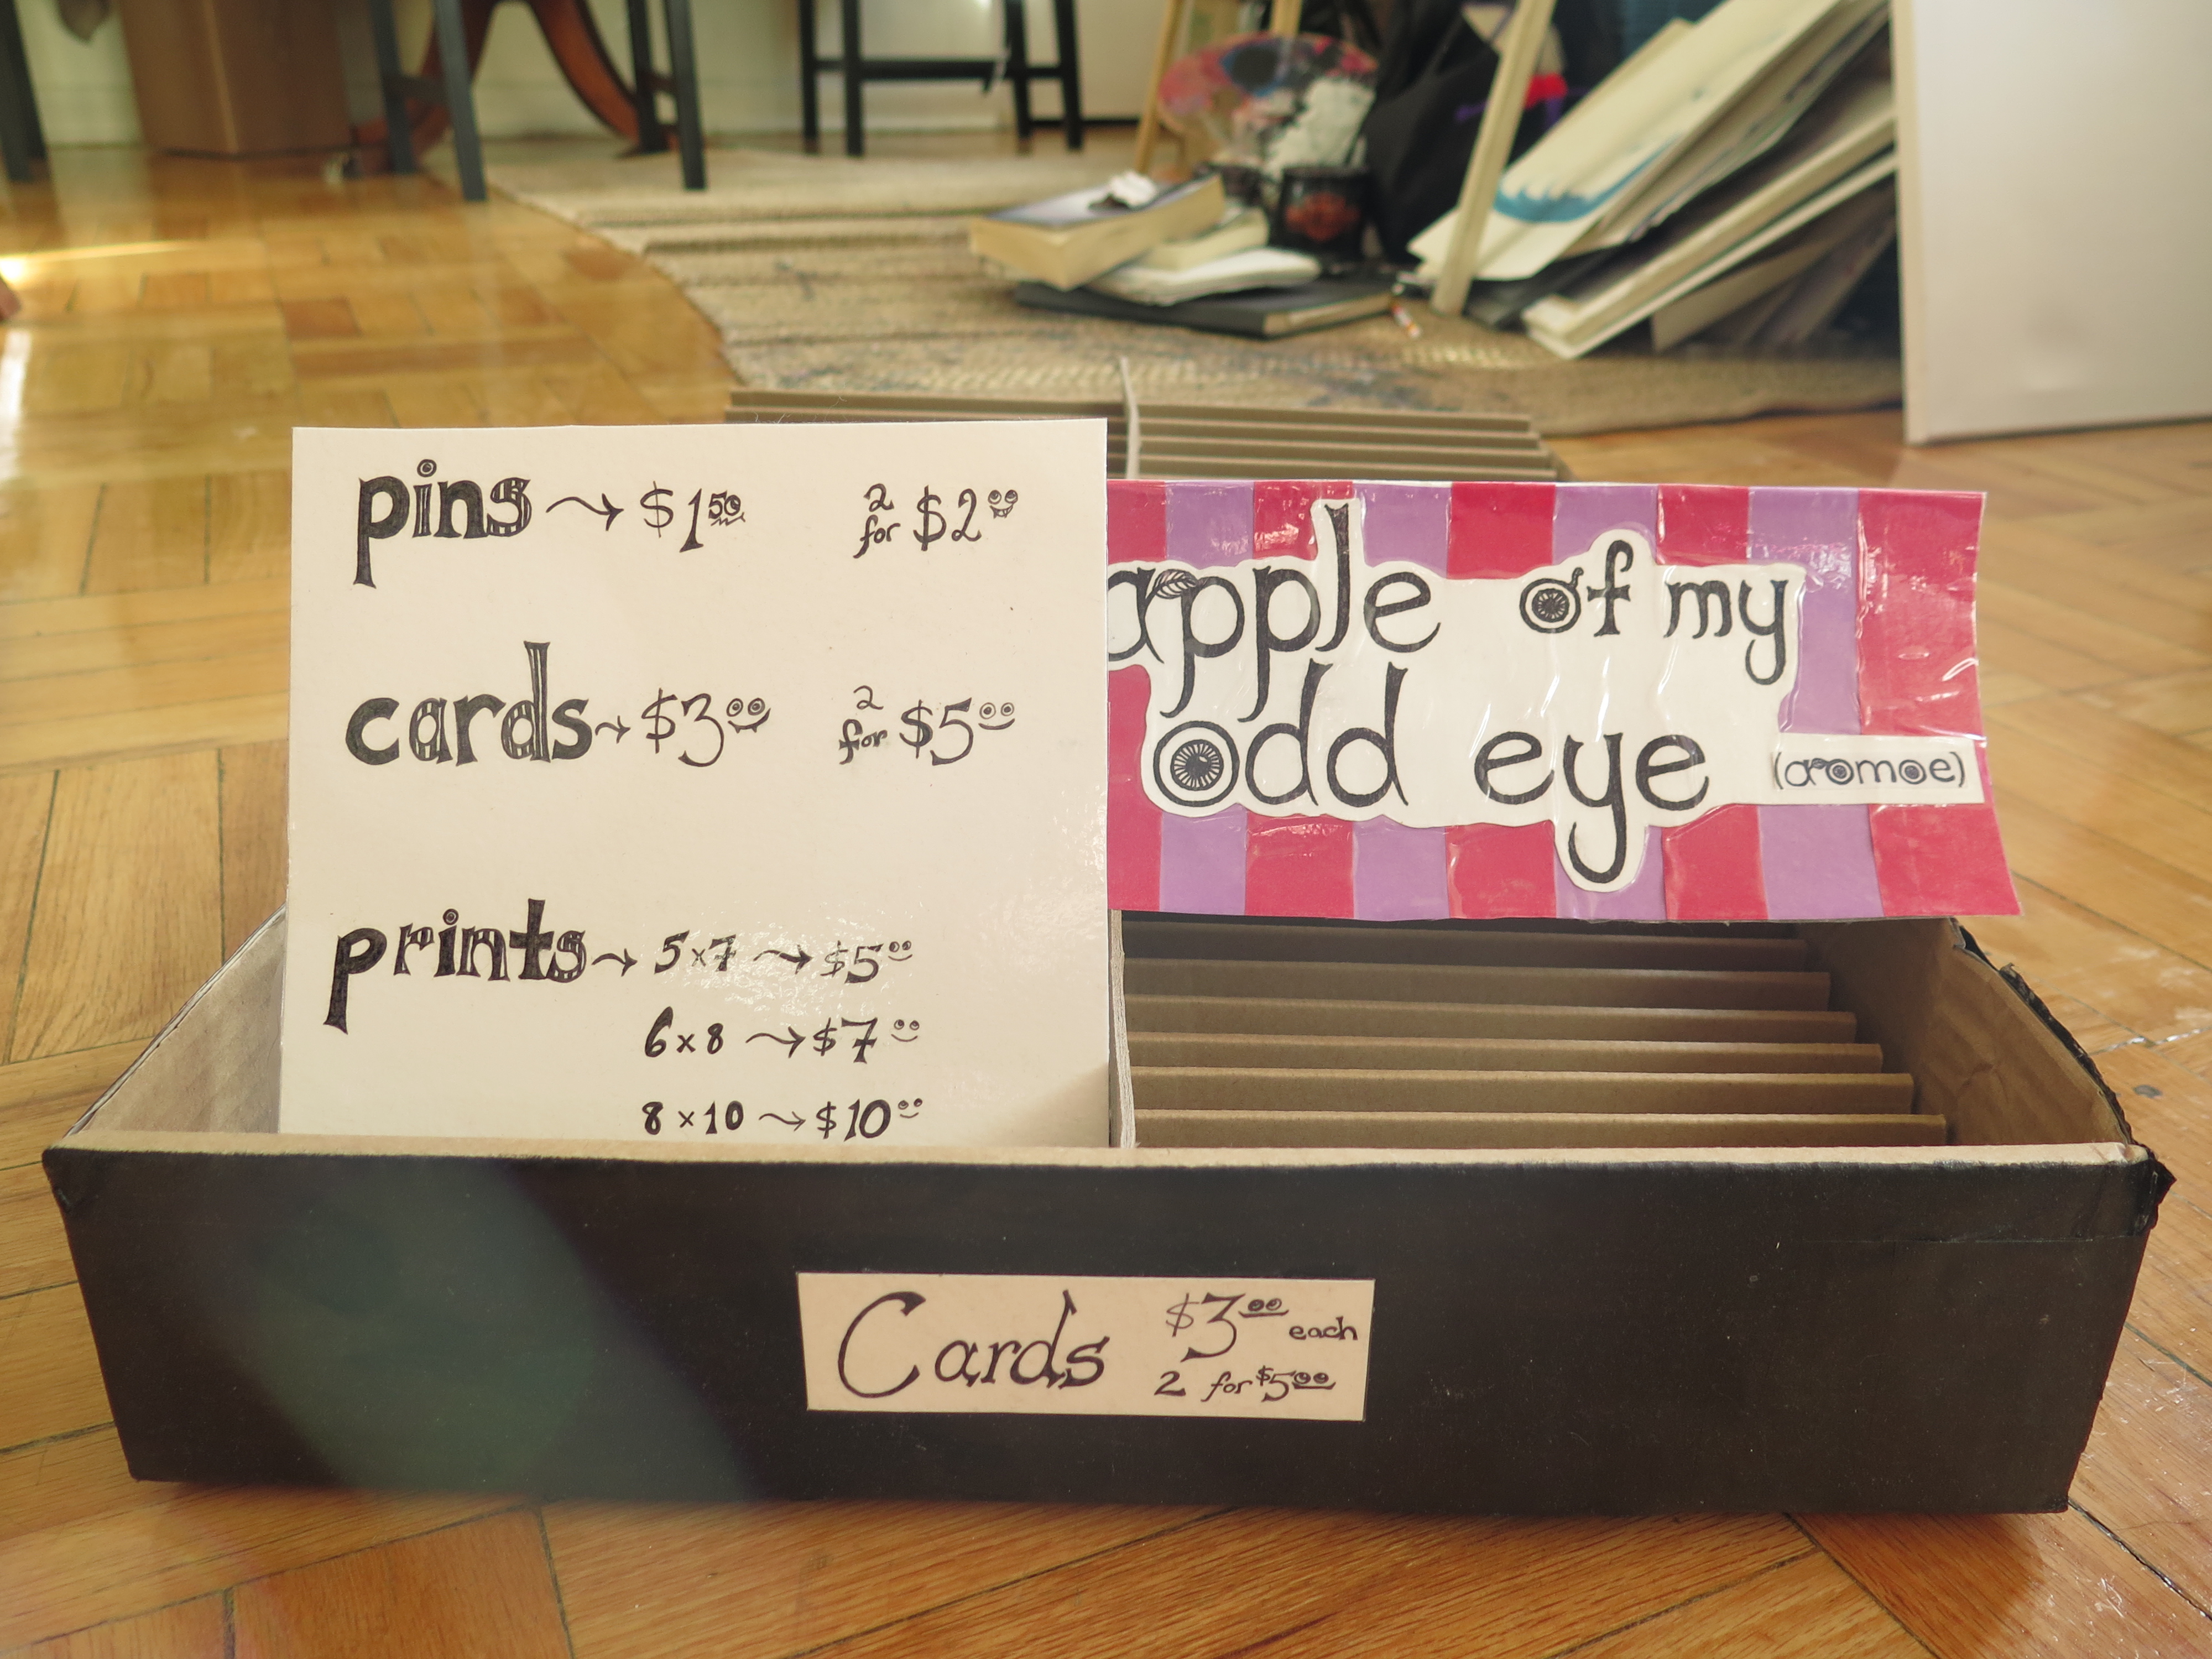 pins → $1.50 2 for $2.00
cards → $3.00 2 for $5.00
prints → 5x7 → $5.00
6x8 → $7.00
8x10 → $10.00
apple of my
odd eye
(aoomoe)
Cards $3.00 each
2 for $5.00